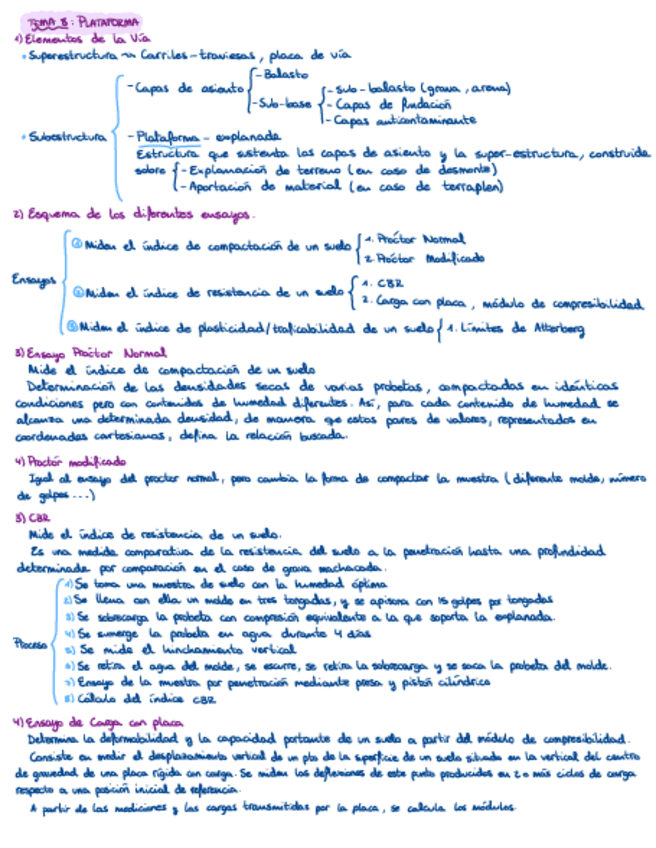 TEMA 8: PLATAFORMA
1) Elementos de la Vía
• Superestructura ~> Carriles-traviesas, placa de vía
- Capas de asiento
- Balasto
- Sub-base
- Sub-balasto (grava, arena)
- Capas de fundación
- Capas anticontaminante
• Subestructura
- Plataforma - explanada
Estructura que sustenta las capas de asiento y la super-estructura, construida
sobre
- Explanación de terreno (en caso de desmonte)
- Aportación de material (en caso de terraplen)
2) Esquema de los diferentes ensayos.
Ensayos
① Miden el índice de compactación de un suelo
1. Proctor Normal
2. Proctor Modificado
② Miden el índice de resistencia de un suelo
1. CBR
2. Carga con placa, módulo de compresibilidad
③ Miden el índice de plasticidad/traficabilidad de un suelo
1. Límites de Atterberg
3) Ensayo Proctor Normal
Mide el índice de compactación de un suelo
Determinación de las densidades secas de varias probetas, compactadas en idénticas
condiciones pero con contenidos de humedad diferentes. Así, para cada contenido de humedad se
alcanza una determinada densidad, de manera qe estos pares de valores, representados en
coordenadas cartesianas, defina la relación buscada.
4) Proctor modificado
Igual al ensayo del proctor normal, pero cambia la forma de compactar la muestra (diferente molde, número
de golpes...)
5) CBR
Mide el índice de resistencia de un suelo.
Es una medida comparativa de la resistencia del suelo a la penetración hasta una profundidad
determinada por comparación en el caso de grava machacada.
Proceso
1) Se toma una muestra de suelo con la humedad óptima
2) Se llena con ella un molde en tres tongadas, y se apisona con 15 golpes por tongadas
3) Se sobrecarga la probeta con compresión equivalente a la que soporta la explanada.
4) Se sumerge la probeta en agua durante 4 días
5) Se mide el hinchamiento vertical
6) Se retira el agua del molde, se escurre, se retira la sobrecarga y se saca la probeta del molde.
7) Ensayo de la muestra por penetración mediante prensa y pistón cilíndrico
8) Cálculo del índice CBR
4) Ensayo de Carga con placa
Determina la deformabilidad y la capacidad portante de un suelo a partir del módulo de compresibilidad.
Consiste en medir el desplazamiento vertical de un pto de la superficie de un suelo situado en la vertical del centro
de gravedad de una placa rígida con carga. Se miden las deflexiones de este punto producidos en 2 o más ciclos de carga
respecto a una posición inicial de referencia.
A partir de las mediciones y las cargas transmitidas por la placa, se calcula los módulos.